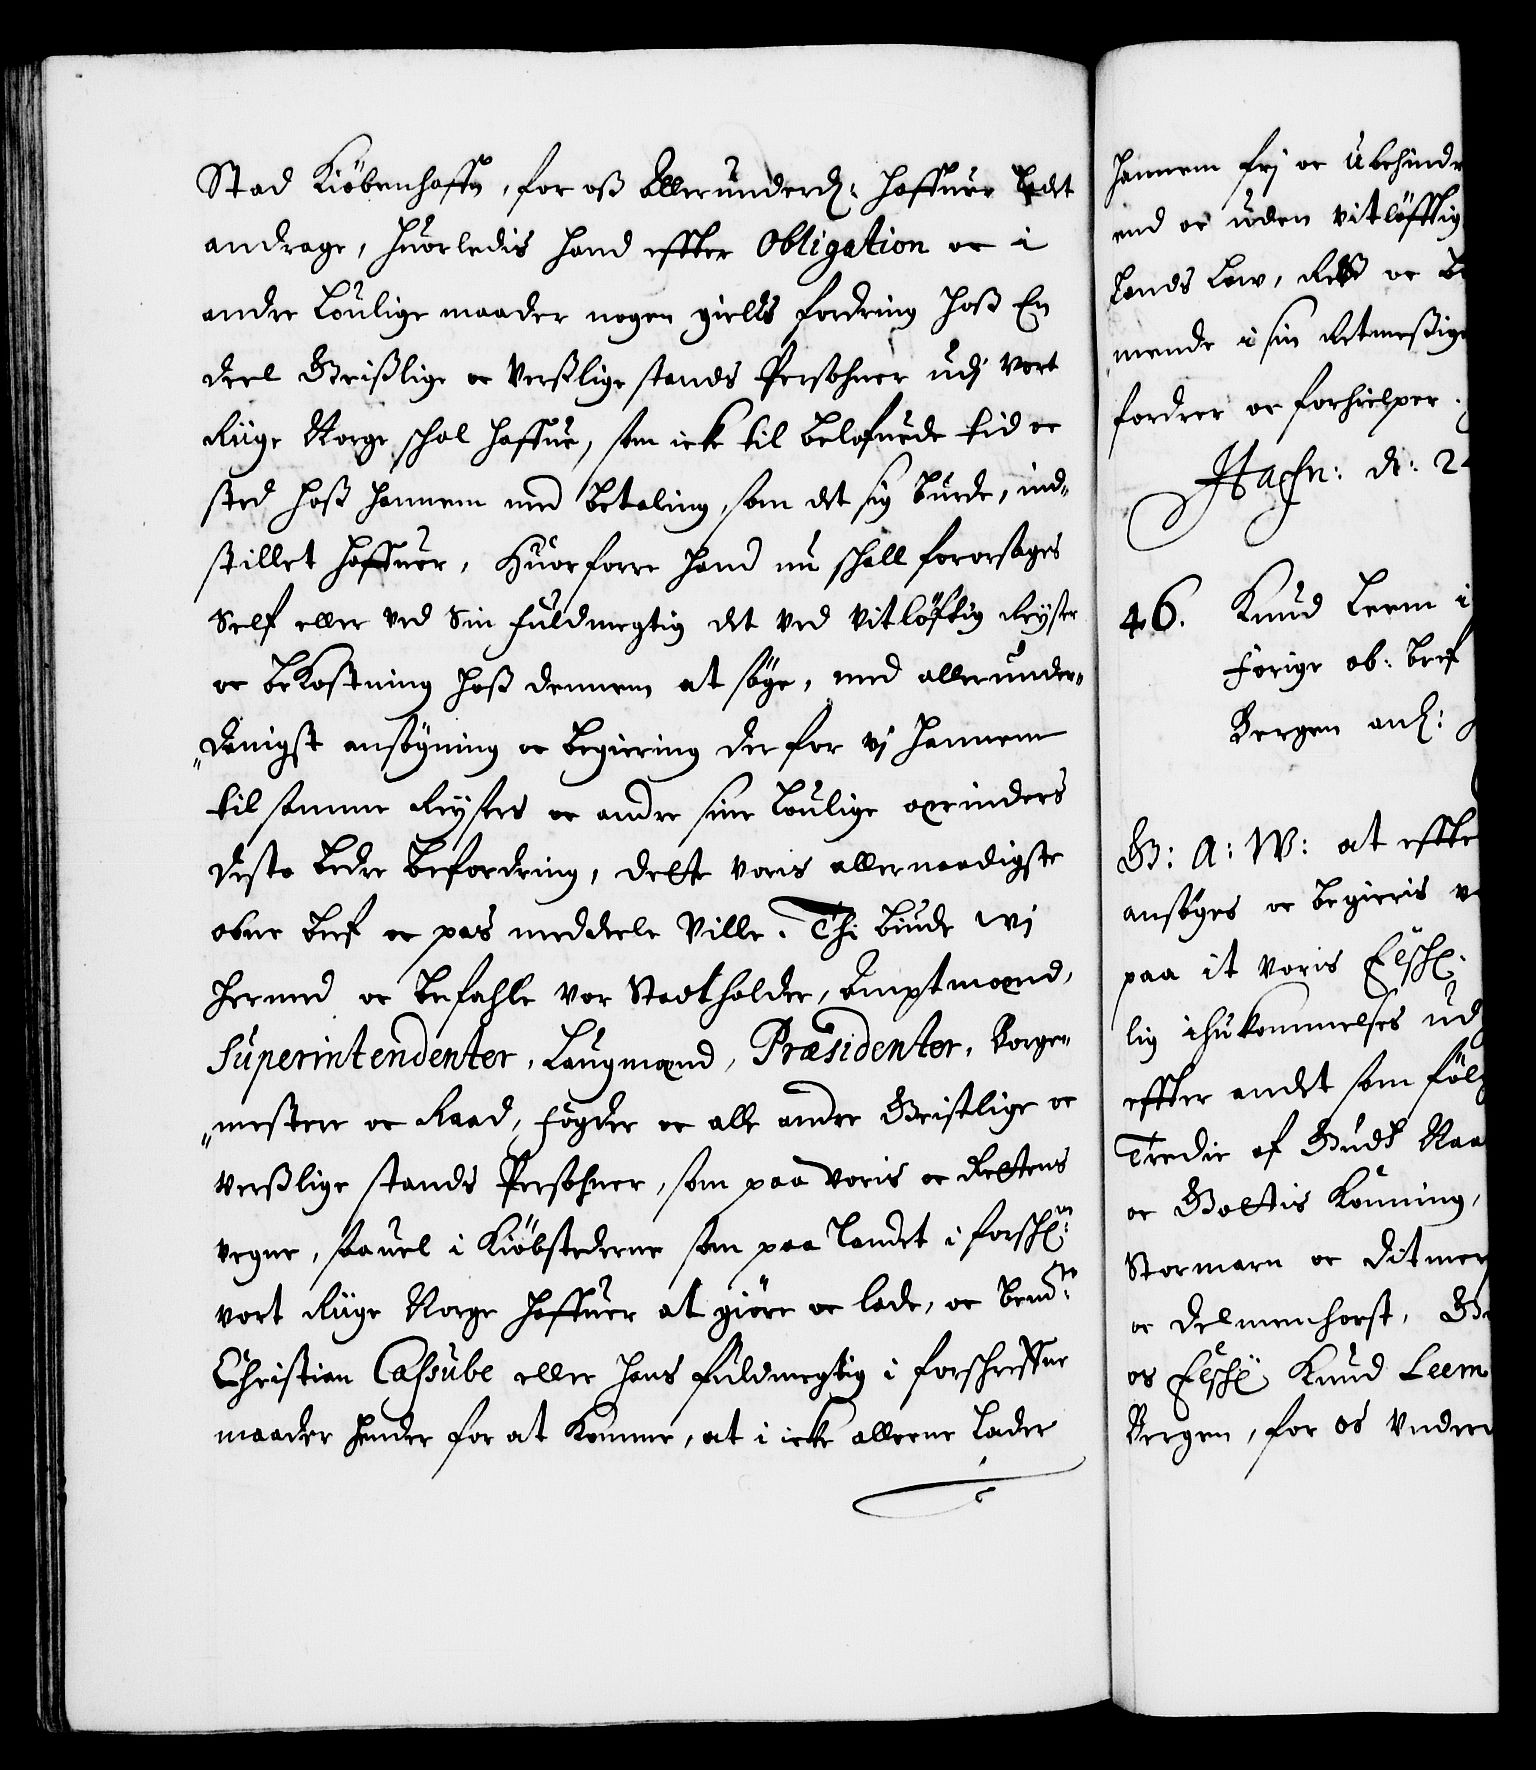 Stad Kiöbenhaffn, for oß Allerunderd: haffuer ladt
andrage, huorledis hand effter Obligation oc i
andre Loulige maader nogen gields fordring hoß En
deel Geistlige oc Verslige stands Persohner udj vort
Riige Norge schal haffue, som icke til belofuede tid oc
sted hoß hannem med betaling, som det sig burde, ind-
stillet haffuer, Huorforre hand nu schall foraarsages
Self eller ved Sin fuldmegtig det ved vitlöftig Reyser
oc bekostning hoß dennem at söge, med allerunder-
danigst ansögning oc begiering der for vj hannem
til samme Reyses oc andre sine loulige ærinders
desto bedre befordring, dette voris allernaadigste
obne bref oc pas meddeele Ville. Thi biude wj
hermed oc befahle vor Stadtholder, Amptmænd,
Superintendenter, Laugmænd, Præsidenter, Borge-
mestere oc Raad, fögder oc alle andre Geistlige oc
verslige stands Persohner, som paa voris oc Rettens
vegne, saauel i Kiöbstederne som paa Landet i forschne:
vort Riige Norge haffuer at giöre oc lade, oc bemte:
Christian Cassube eller hans fuldmegtig i forschreffne
maader hender for at komme, at i icke alleene lader
hannem frj oc Ubehindr
end oc uden vitlöfftig
Lands Low, Ret oc
mende i sin Retmessige
fordrer oc forhielper.
Hafn: d: 2
46. Knud Leem i
förige ob: bref
Bergen anl:
G: A: W: at effte
ansöges oc begieris
paa it voris Elschl.
lig ihukommelses ud
effter andet som fölg
Tredie af Guds Naa
oc Gottis Konning,
Stormarn oc Ditmer
oc Delmenhorst, G
os Elschl: Knud Leem
Bergen, for os Vnder